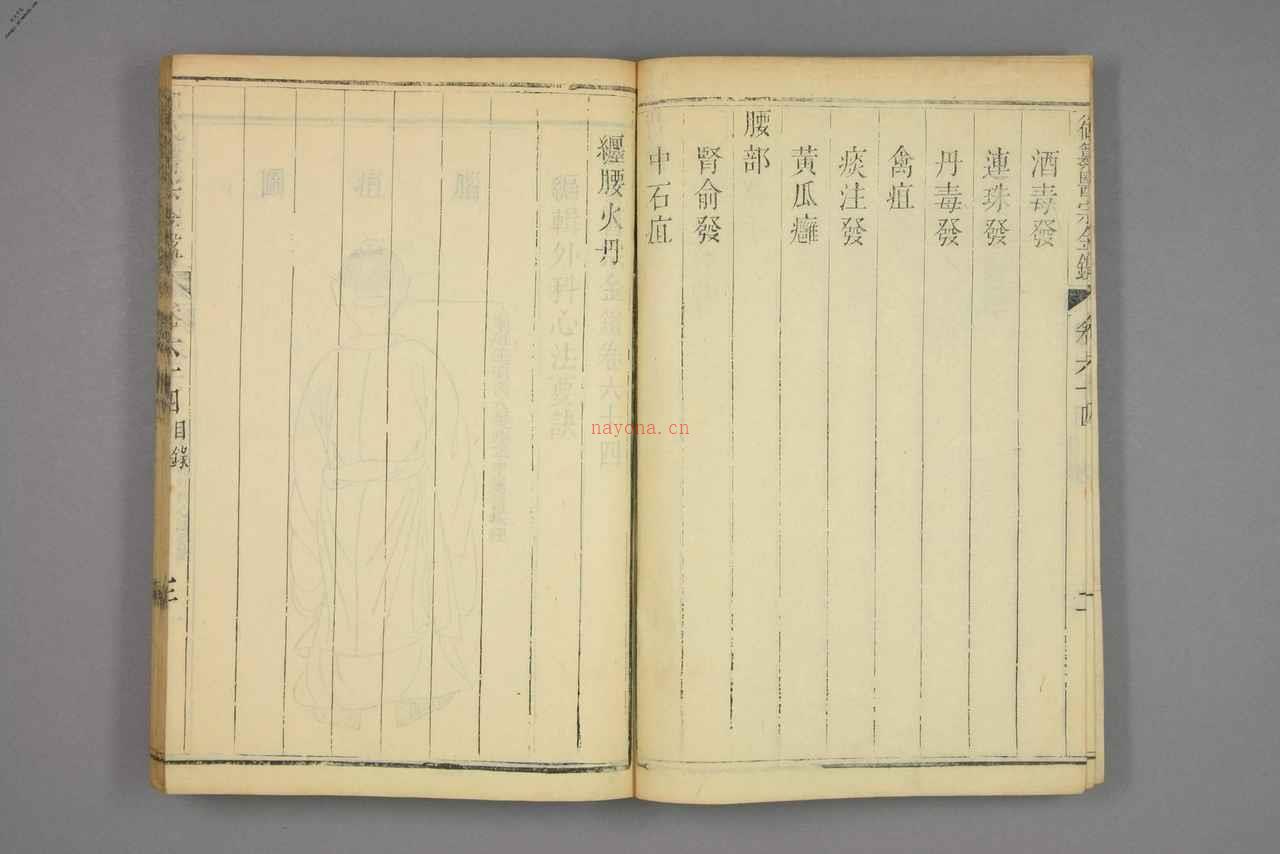 御纂醫宗金鑑 卷六十四
酒毒發
連珠發
丹毒發
禽疽
痰注發
黃瓜癰
腰部
腎俞發
中石疽
纏腰火丹
金鑑卷六十四
編輯外科心法要訣
腦疽圖
卷六十四 目錄
nayona.cn